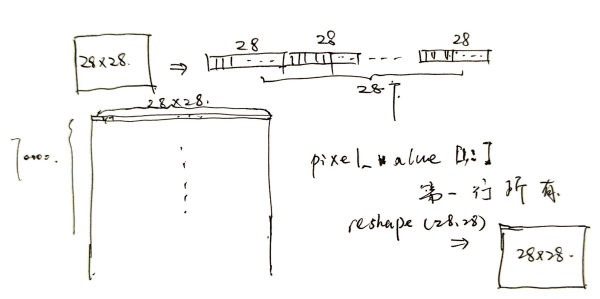 28×28. ⇒ 28 28 .... 28
28个
28×28.
70000.
pixel_value [1,:]
第一行所有
reshape (28,28)
⇒ 28×28.